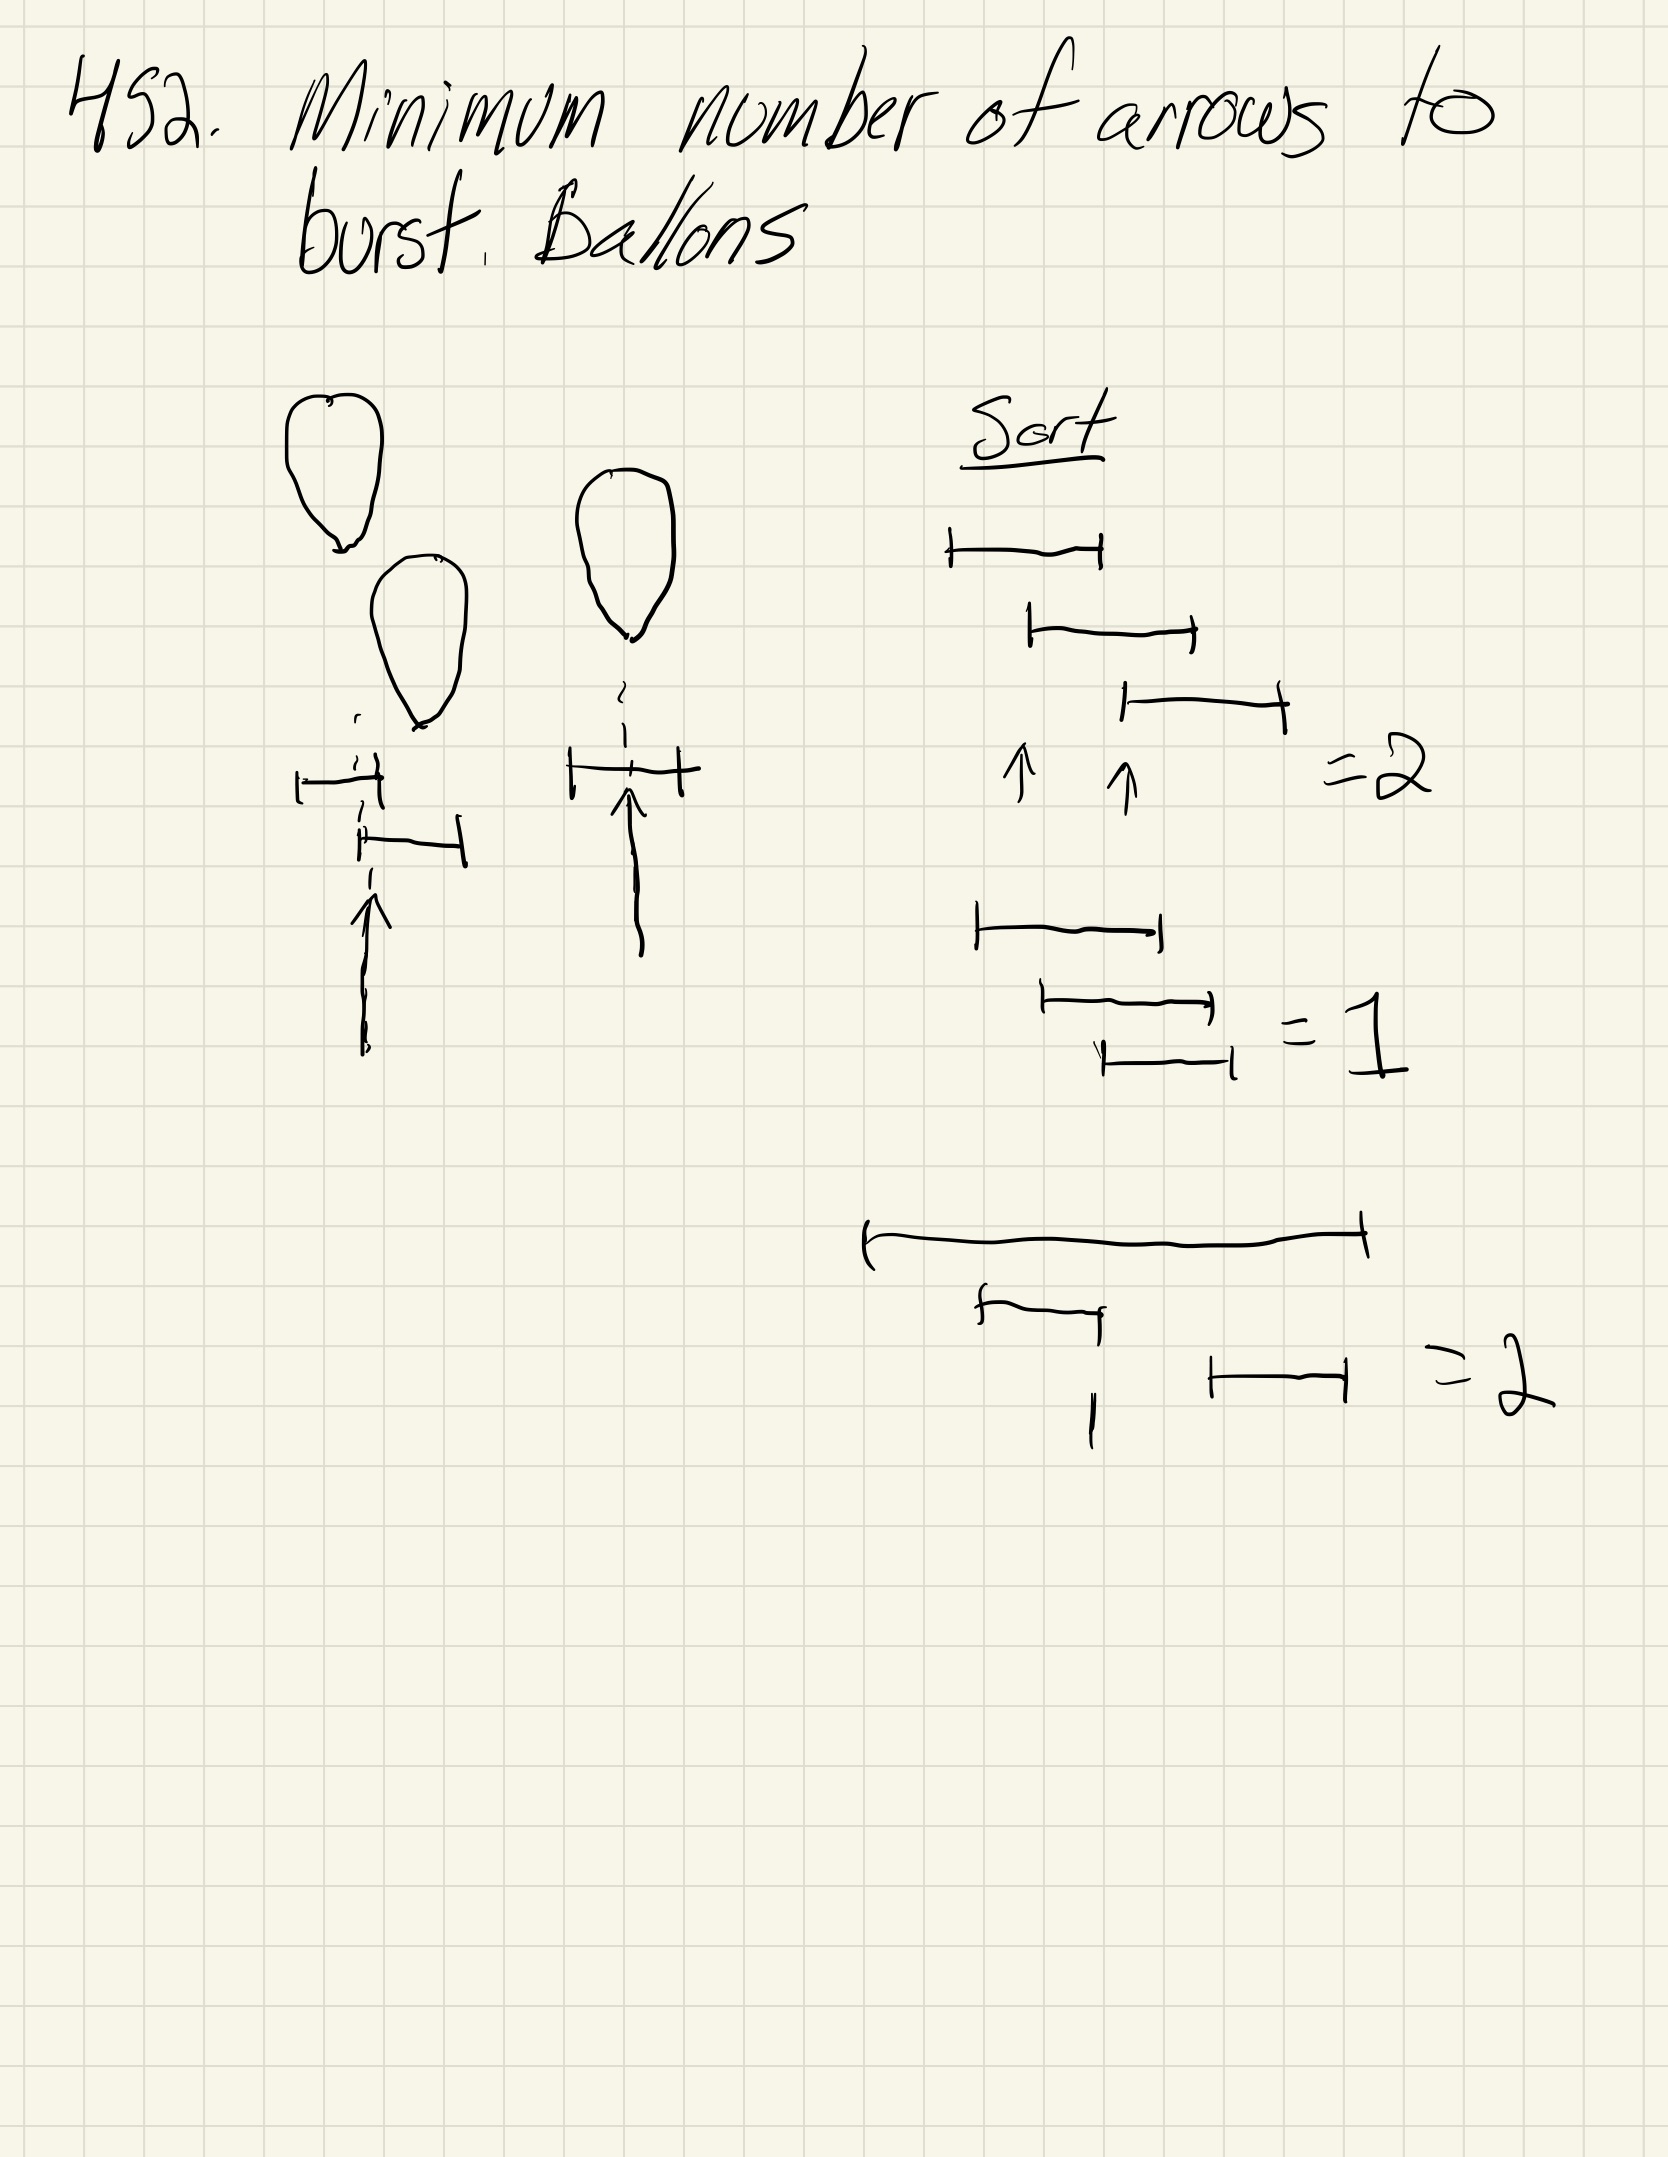 452. Minimum number of arrows to
burst Ballons
Sort
=2
= 1
= 2